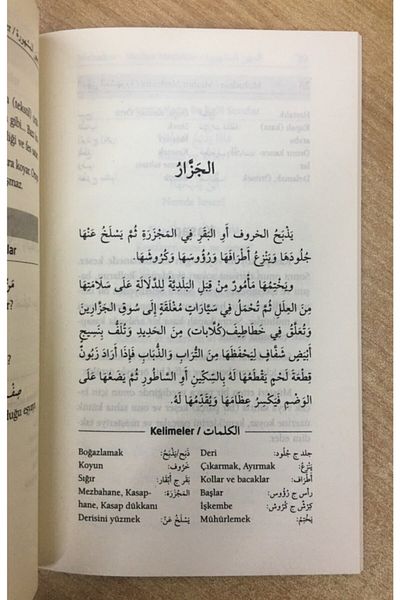 الجَزَّارُ
يَذْبَحُ الخروف أَو البَقَر فِي المَجْزَرَةِ ثُمَّ يَسْلَخُ عَنْهَا
جُلُودَهَا وَيَنْزِعُ أَطْرَافَهَا وَرُؤُوسَهَا وَكُرُوشَهَا.
وَيَخْتِمُهَا مَأْمُورٌ مِنْ قِبَلِ البَلَدِيَّةِ لِلدَّلَالَةِ عَلَى سَلَامَتِهَا
مِنَ العِلَلِ ثُمَّ تُحْمَلُ فِي سَيَّارَاتٍ مُغْلَقَةٍ إِلَى سُوقِ الجَزَّارِينَ
وَتُعَلَّقُ فِي خَطَاطِيفَ(كُلَّابَات) مِنَ الحَدِيدِ وَتُلَفُّ بِنَسِيجٍ
أَبْيَضَ شَفَّافٍ لِيَحْفَظَهَا مِنَ التُّرَابِ وَالذُّبَابِ فَإِذَا أَرَادَ زَبُونٌ
قِطْعَةَ لَحْمٍ يَقْطَعُهَا لَهُ بِالسِّكِّينِ أَو السَّاطُورِ ثُمَّ يَضَعُهَا عَلَى
الوَضَمِ فَيَكْسِرُ عِظَامَهَا وَيُقَدِّمُهَا لَهُ.
Kelimeler / الكلمات
Boğazlamak ذَبَحَ/يَذْبَحُ: Deri جلد ج جُلُود:
Koyun خَرُوف: Çıkarmak, Ayırmak يَنْزِعُ:
Sığır بَقَر ج أَبْقَار: Kollar ve bacaklar أَطْرَاف:
Mezbahane, Kasap- المَجْزَرَة: Başlar رأس ج رُؤُوس:
hane, Kasap dükkanı İşkembe كَرْش ج كُرُوش:
Derisini yüzmek يَسْلَخُ عَنْ: Mühürlemek يَخْتِمُ: